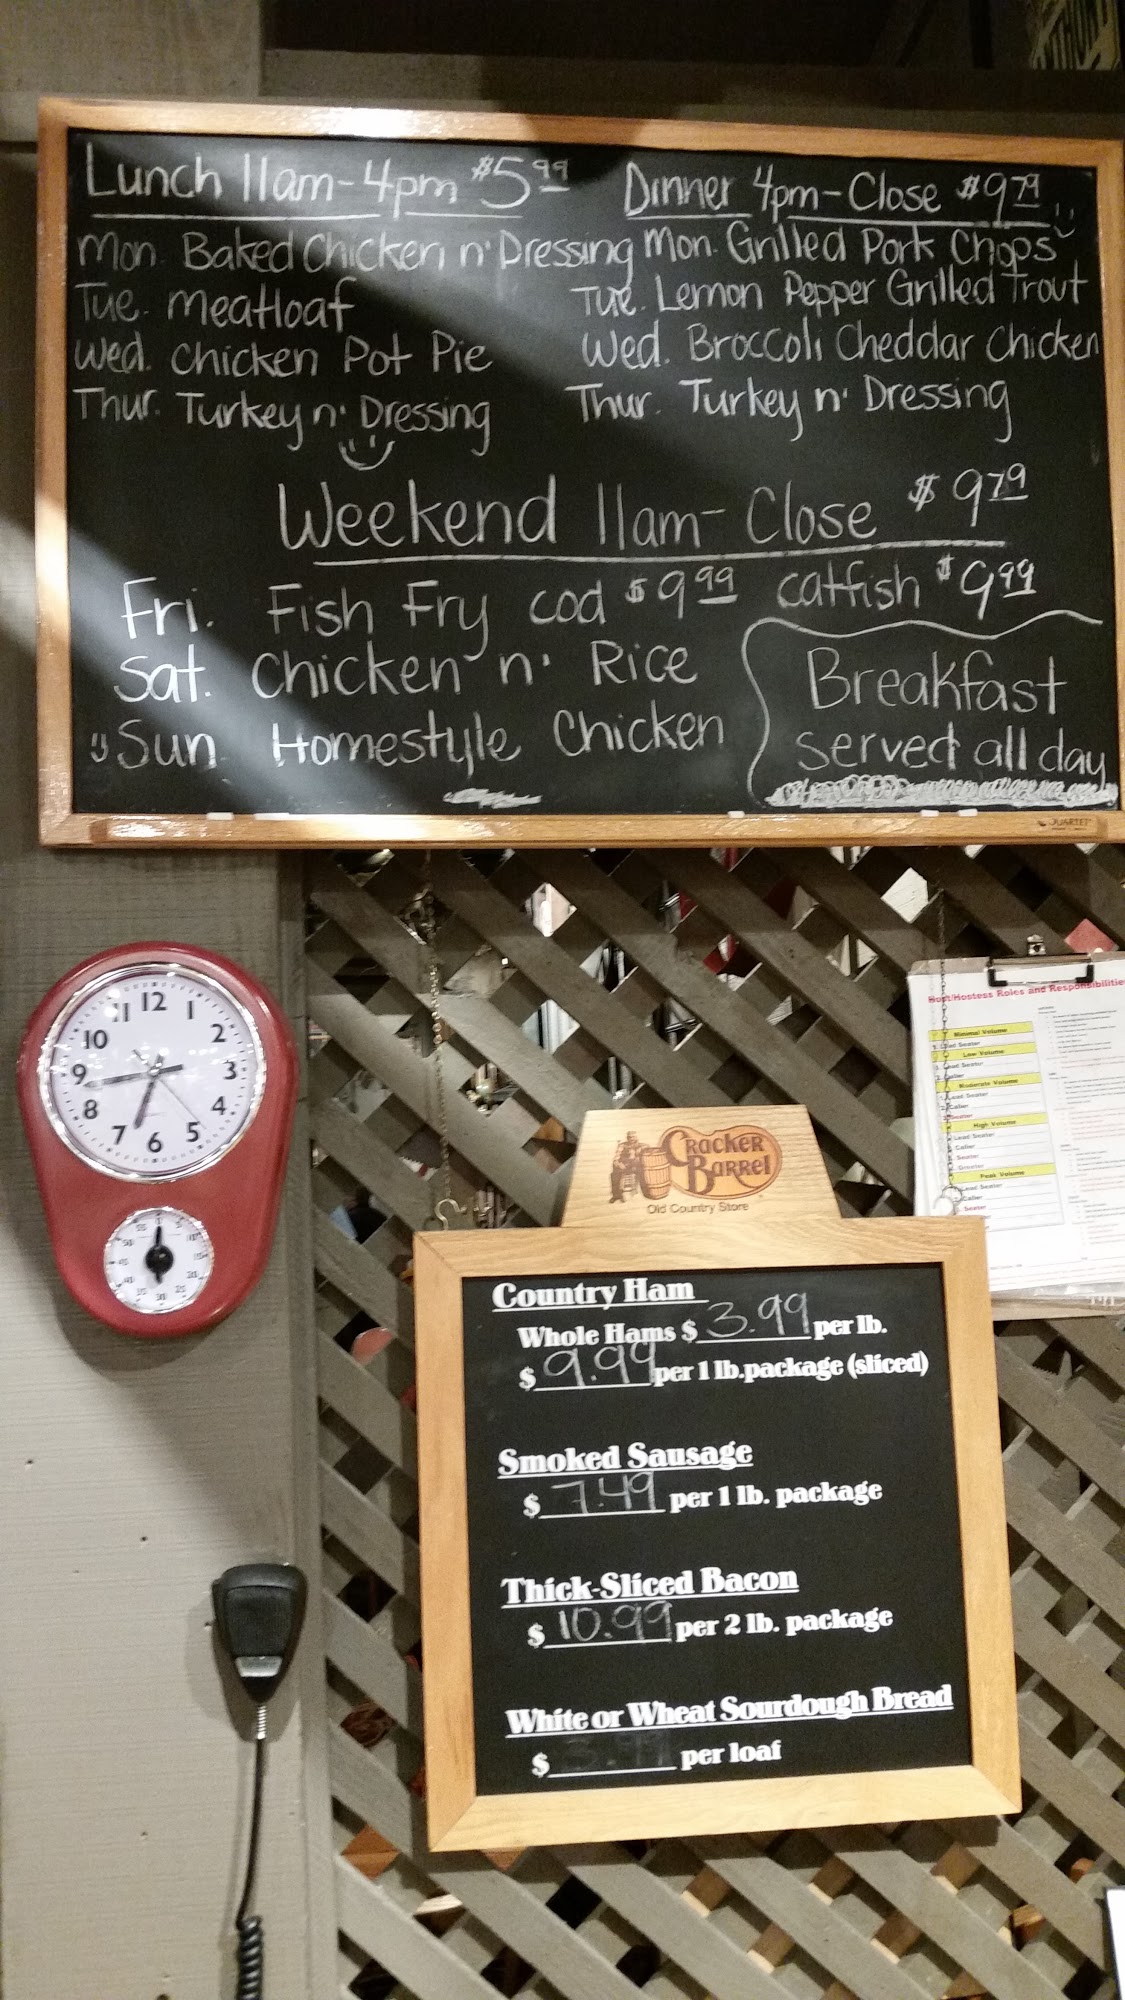 Lunch 11am-4pm $5.99
Mon. Baked Chicken n' Dressing
Tue. Meatloaf
Wed. Chicken Pot Pie
Thur. Turkey n' Dressing
Dinner 4pm-Close $9.79
Mon. Grilled Pork Chops
Tue. Lemon Pepper Grilled Trout
Wed. Broccoli Cheddar Chicken
Thur. Turkey n' Dressing
Weekend 11am-Close $9.79
Fri. Fish Fry cod $9.99 catfish $9.99
Sat. Chicken n' Rice
Sun. Homestyle Chicken
Breakfast
served all day
QUARTET
12
1
2
3
4
5
6
7
8
9
10
11
Host/Hostess Roles and Responsibilities
Minimal Volume
Lead Seater
Low Volume
Lead Seater
Caller
Moderate Volume
Lead Seater
Caller
Seater
High Volume
Lead Seater
Caller
Seater
Greeter
Peak Volume
Lead Seater
Caller
Seater
Cracker
Barrel
Old Country Store
Country Ham
Whole Hams $ 3.99 per lb.
$ 9.99 per 1 lb. package (sliced)
Smoked Sausage
$ 7.49 per 1 lb. package
Thick-Sliced Bacon
$ 10.99 per 2 lb. package
White or Wheat Sourdough Bread
$ 3.99 per loaf